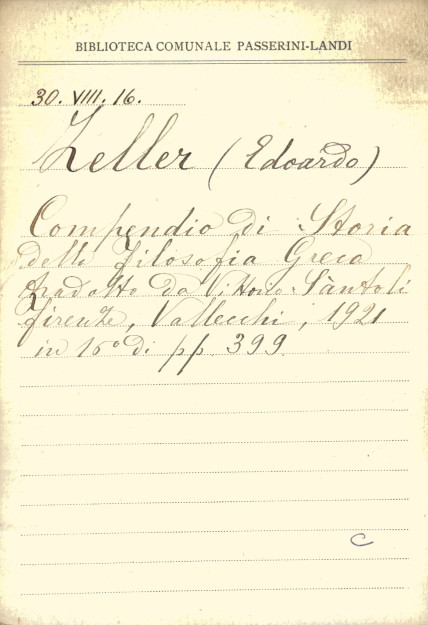 BIBLIOTECA COMUNALE PASSERINI-LANDI
30. VIII. 16.
Zeller (Edoardo)
Compendio di Storia
della Filosofia Greca
tradotto da Vittorio Sàntoli
Firenze, Vallecchi, 1921
in 16º di pp. 399.
C